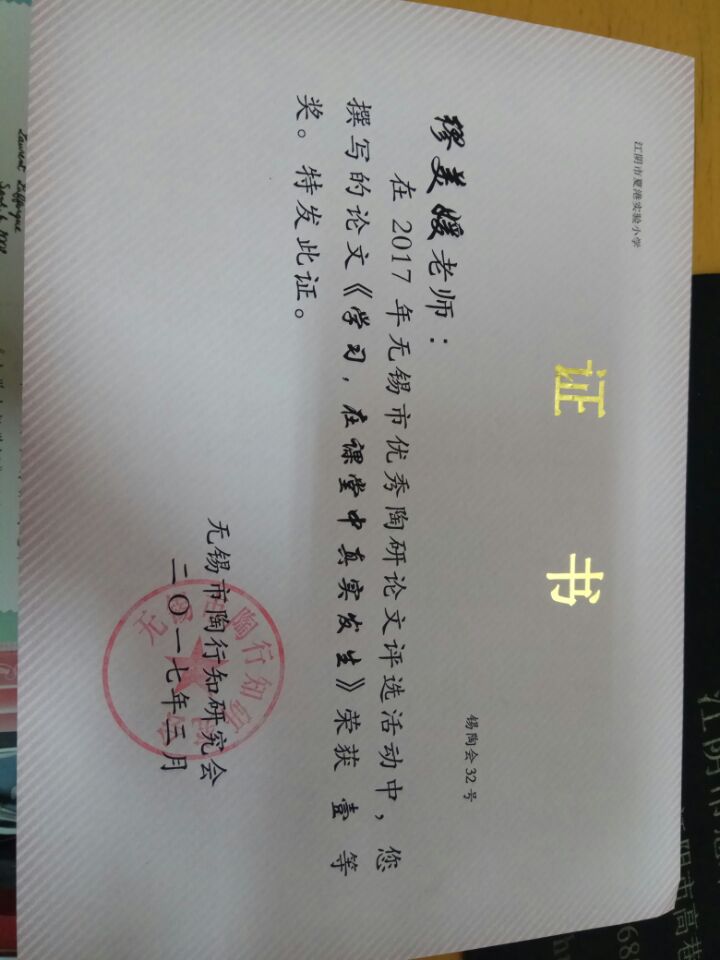 江阴市夏港实验小学
证 书
锡陶会 32 号
缪美媛老师：
在 2017 年无锡市优秀陶研论文评选活动中，您
撰写的论文《学习，在课堂中真实发生》荣获 壹 等
奖。特发此证。
无锡市陶行知研究会
二〇一七年三月